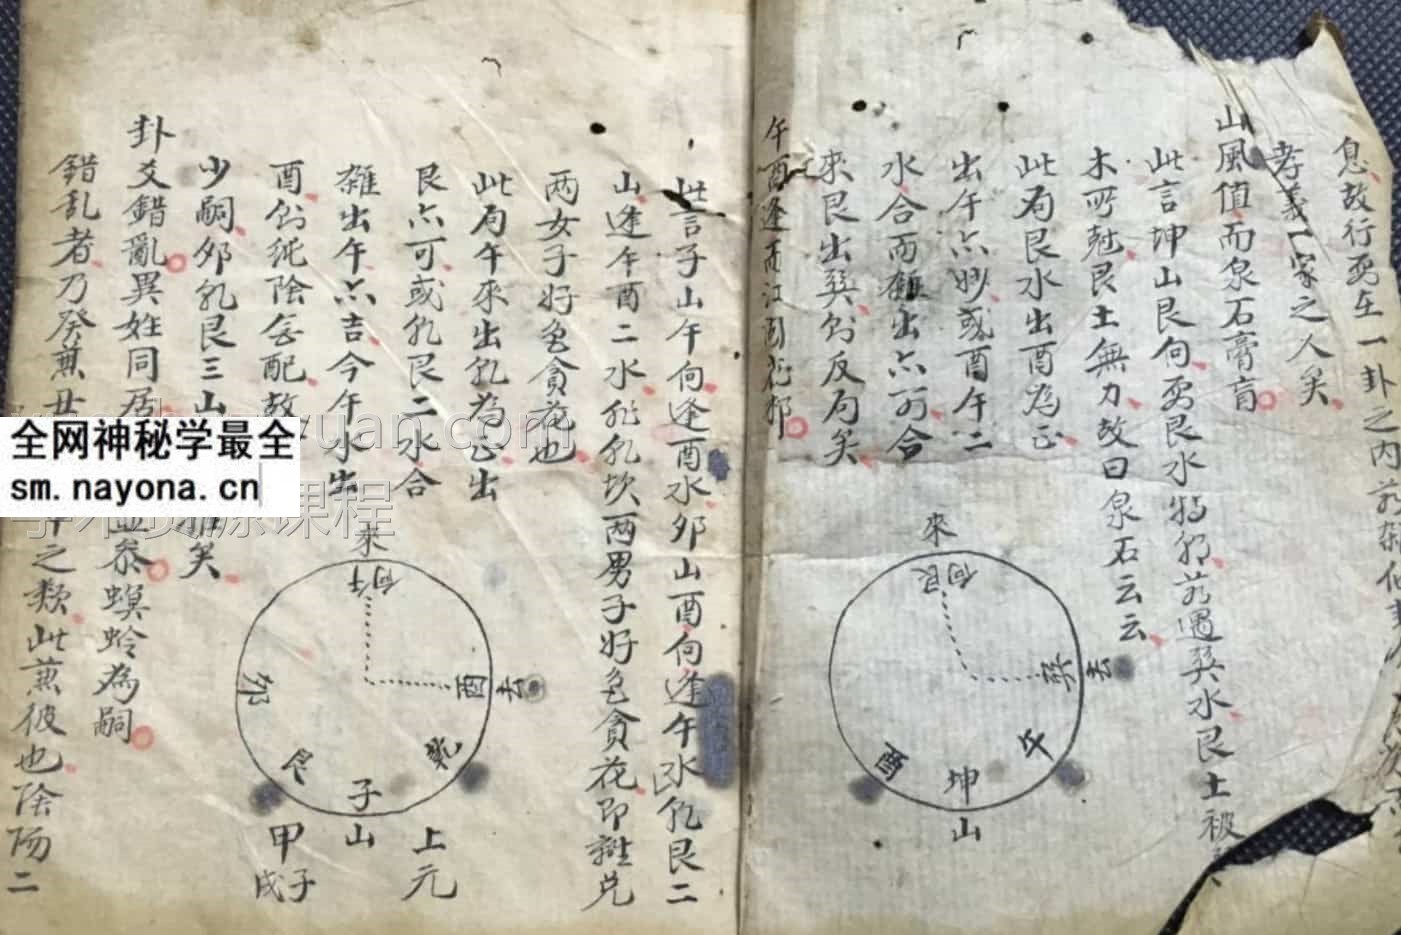 息故行.至在一卦之内若雜他
孝義一家之人矣
山風值而泉石膏肓
此言坤山艮向要艮水特朝若遇巽水艮土被
木所尅艮土無力故曰泉石云云
此局艮水出酉為正
出午亦妙或酉午二
水合而雜出亦可合
來艮出巽則反局矣
來
向艮
巽去
午
酉
坤
山
午酉逢而江湖花邪
此言子山午向逢酉水卯山酉向逢午水乾艮二
山逢午酉二水非乾坎两男子好色貪花即離兑
两女子好色貪花也
此局午來出乾為正出
艮亦可或乾艮二水合
雜出午亦吉今午水出
酉則純陰無配故
少嗣卯乾艮三山
矣
來
向午
酉去
乾
卯
艮
子
山
上元
甲子
戌
卦爻錯亂異姓同居
螟蛉為嗣
錯乱者乃癸兼丑
之類此兼彼也陰陽二
全网神秘学最全
sm.nayona.cn
yuan.com
学术资源课程